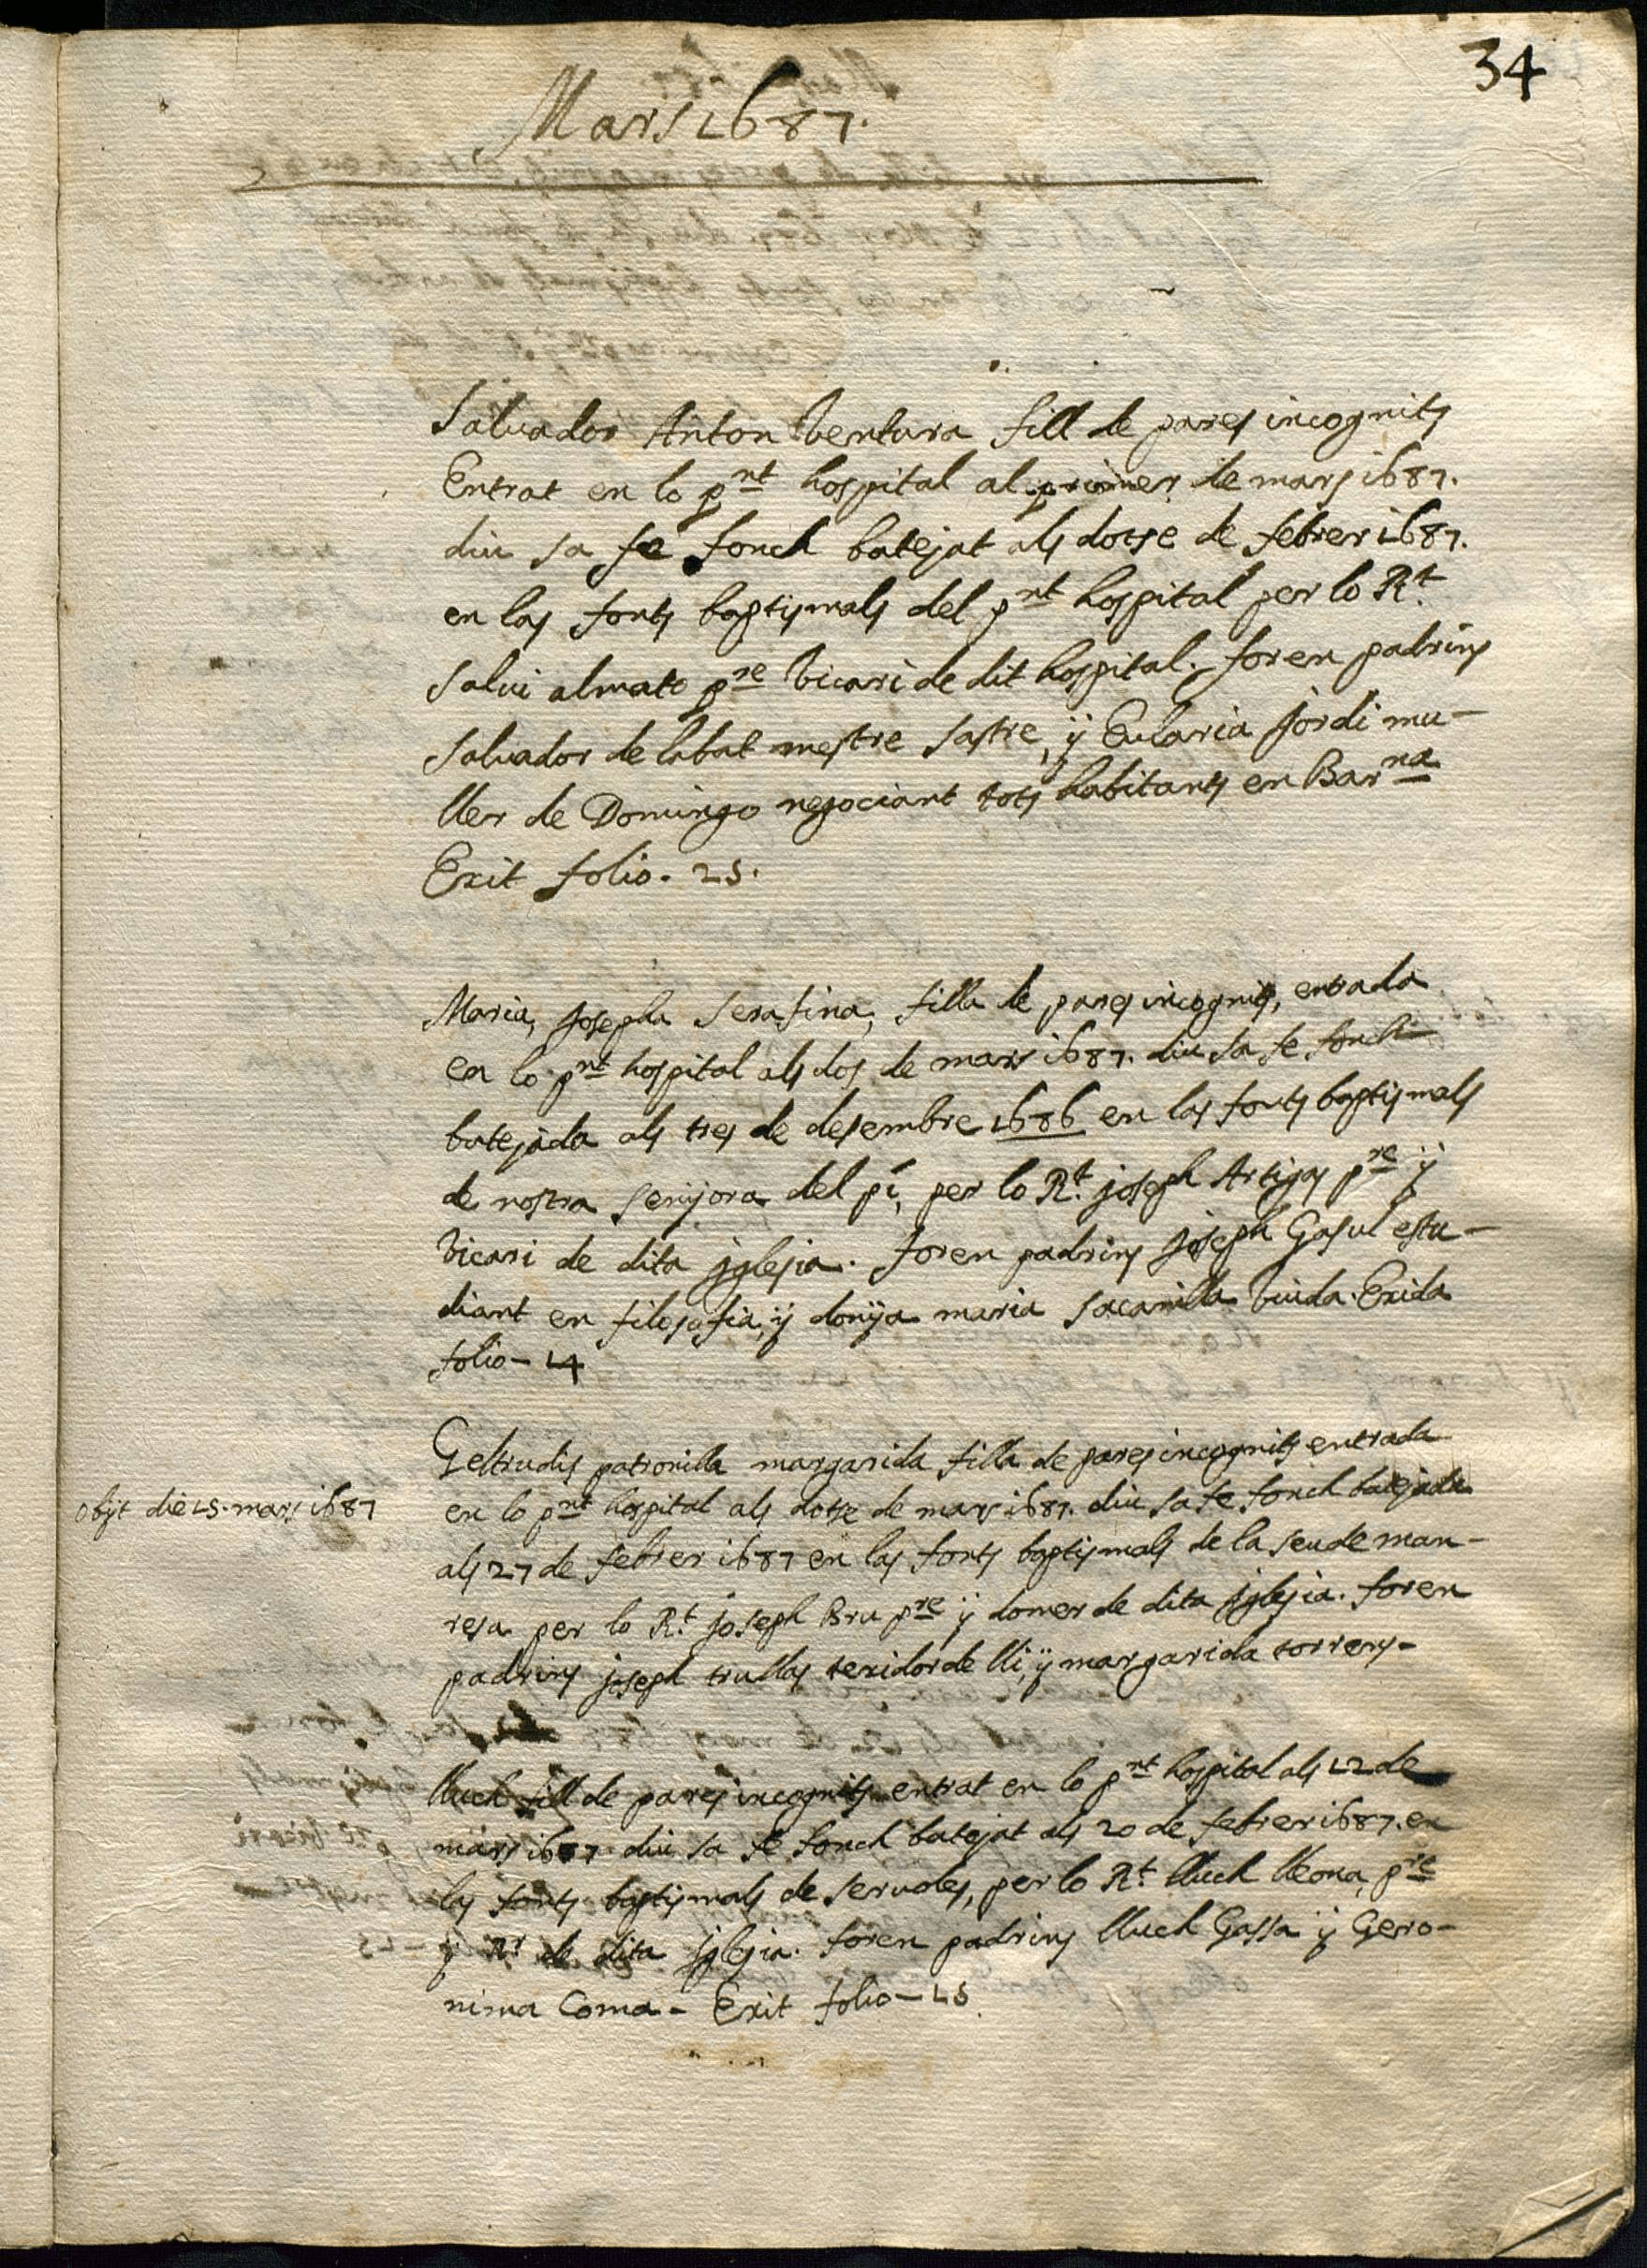 34
Mars 1687.
Saluador Anton Ventura fill de pares incognits
Entrat en lo pnt hospital al primer de mars 1687.
diu sa fe fonch batejat als dotse de febrer 1687.
en las fonts baptismals del pnt hospital per lo Rt.
Salui almato pre Vicari de dit hospital. foren padrins
Saluador de labat mestre sastre, ÿ Eularia Jordi mu-
ller de Domingo negociant tots habitants en Barna
Exit folio. 25.
Maria, Josepha Serafina, filla de pares incognits, entrada
en lo pnt hospital als dos de mars 1687. diu sa fe fonch
batejada als tres de desembre 1686 en las fonts baptismals
de nostra senÿora del pi, per lo Rt. joseph Artigas pre ÿ
Vicari de dita jglesia. foren padrins Joseph Gasul estu-
diant en filosofia, ÿ donÿa maria sacanilla Viuda. Exida
folio - 14
Geltrudis patronilla margarida filla de pares incognits entrada
obÿt die 15. mars 1687
en lo pnt hospital als dotse de mars 1687. diu sa fe fonch batejada
als 27 de febrer 1687 en las fonts baptismals de la seu de man-
resa per lo Rt. joseph Bru pre ÿ domer de dita jglesia. foren
padrins joseph trullas texidor de lli, ÿ margarida torrens-
lluch fill de pares incognits entrat en lo pnt hospital als 12 de
mars 1687 diu sa fe fonch batejat als 20 de febrer 1687. en
las fonts baptismals de seruoles, per lo Rt. lluch lleona, pre
ÿ Rr de dita jglesia. foren padrins lluch Gassa ÿ Gero-
nima Coma - Exit folio - 15